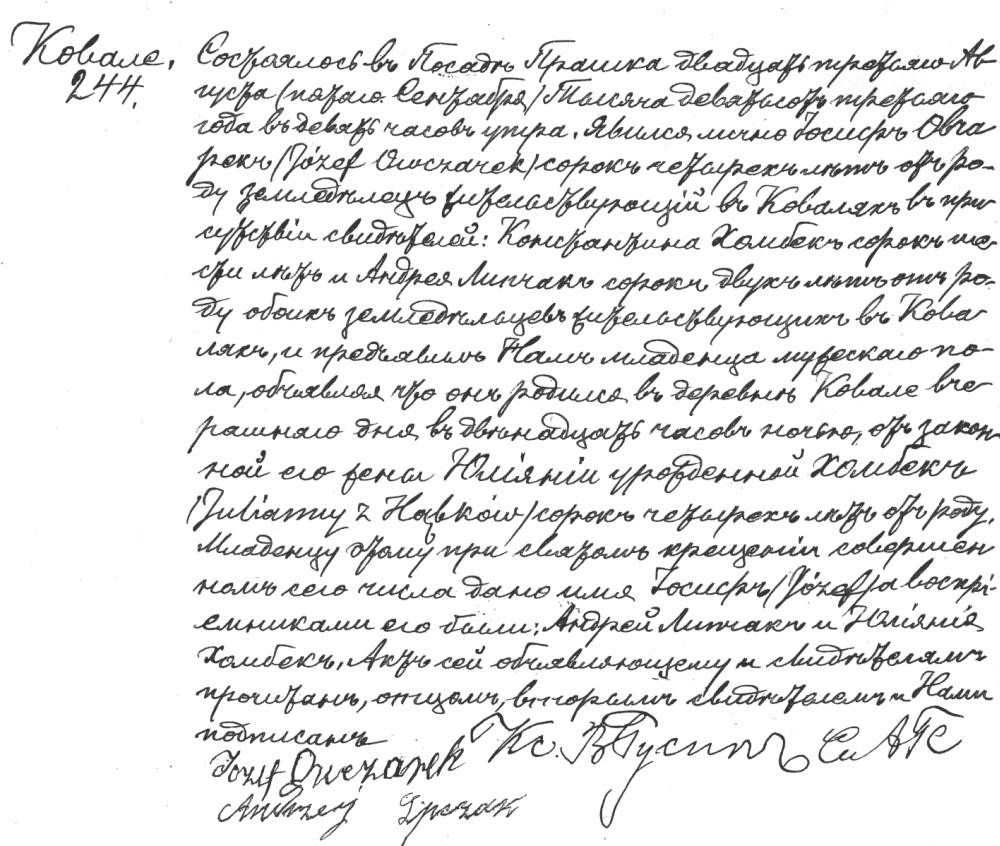 Ковале.
244.
Состоялось въ Посадѣ Прашка двадцать третьяго Ав-
густа (пятаго Сентября) Тысяча девятьсотъ третьяго
года въ девять часовъ утра. Явился лично Іосифъ Овча
рекъ (Józef Owczarek) сорокъ четырехъ лѣтъ отъ ро-
ду земледѣлецъ жительствующій въ Ковалякъ въ при
сутствіи свидѣтелей: Константина Хомбекъ сорокъ ше-
сти лѣтъ и Андрея Липчакъ сорокъ двухъ лѣтъ отъ ро-
ду обоихъ земледѣльцевъ жительствующихъ въ Кова-
ляхъ, и предъявилъ Намъ младенца мужескаго по-
ла, объявляя что онъ родился въ деревнѣ Ковале вче
рашнаго дня въ двѣнадцать часовъ ночью, отъ закон-
ной его жены Юліяніи урожденной Хомбекъ
(Julianny z Hąbków) сорокъ четырехъ лѣтъ отъ роду.
Младенцу этому при святомъ крещеніи совершен
номъ сего числа дано имя Іосифъ (Józef) а воспрі-
емниками его были: Андрей Липчакъ и Юліянія
Хомбекъ. Актъ сей объявляющему и свидѣтелямъ
прочитанъ, отцомъ, вторымъ свидѣтелемъ и Нами
подписанъ
Józef Owczarek Кс. В
Andrzej Lipczak